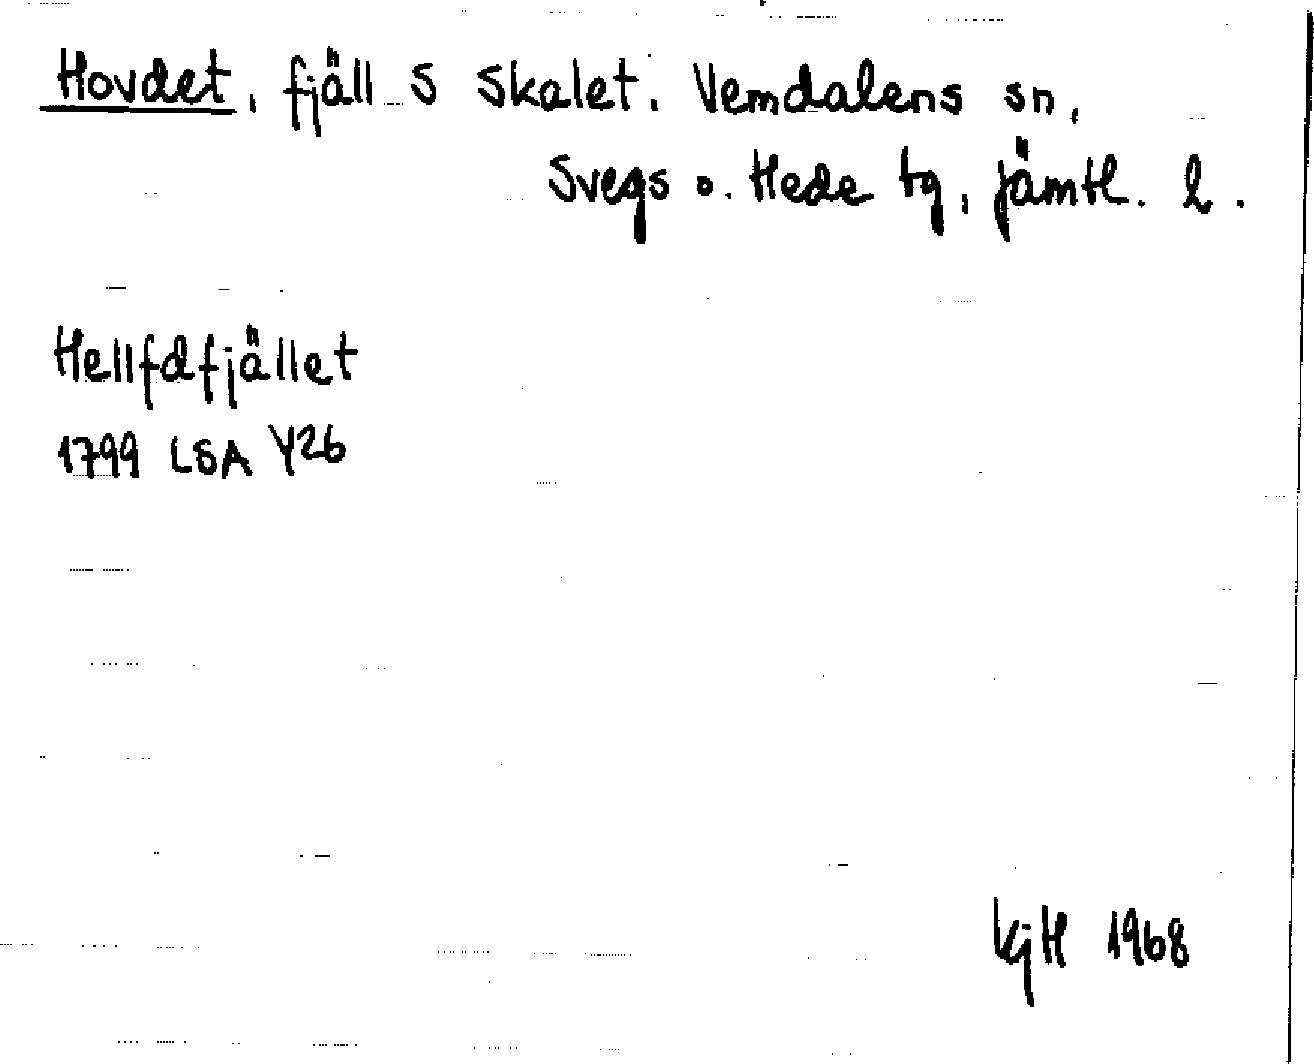 Hovdet, fjäll S Skalet. Vemdalens sn,
Svegs o. Hede tg, Jämtl. l.
Hellfdfjället
1799 LSA Y26
KjH 1968